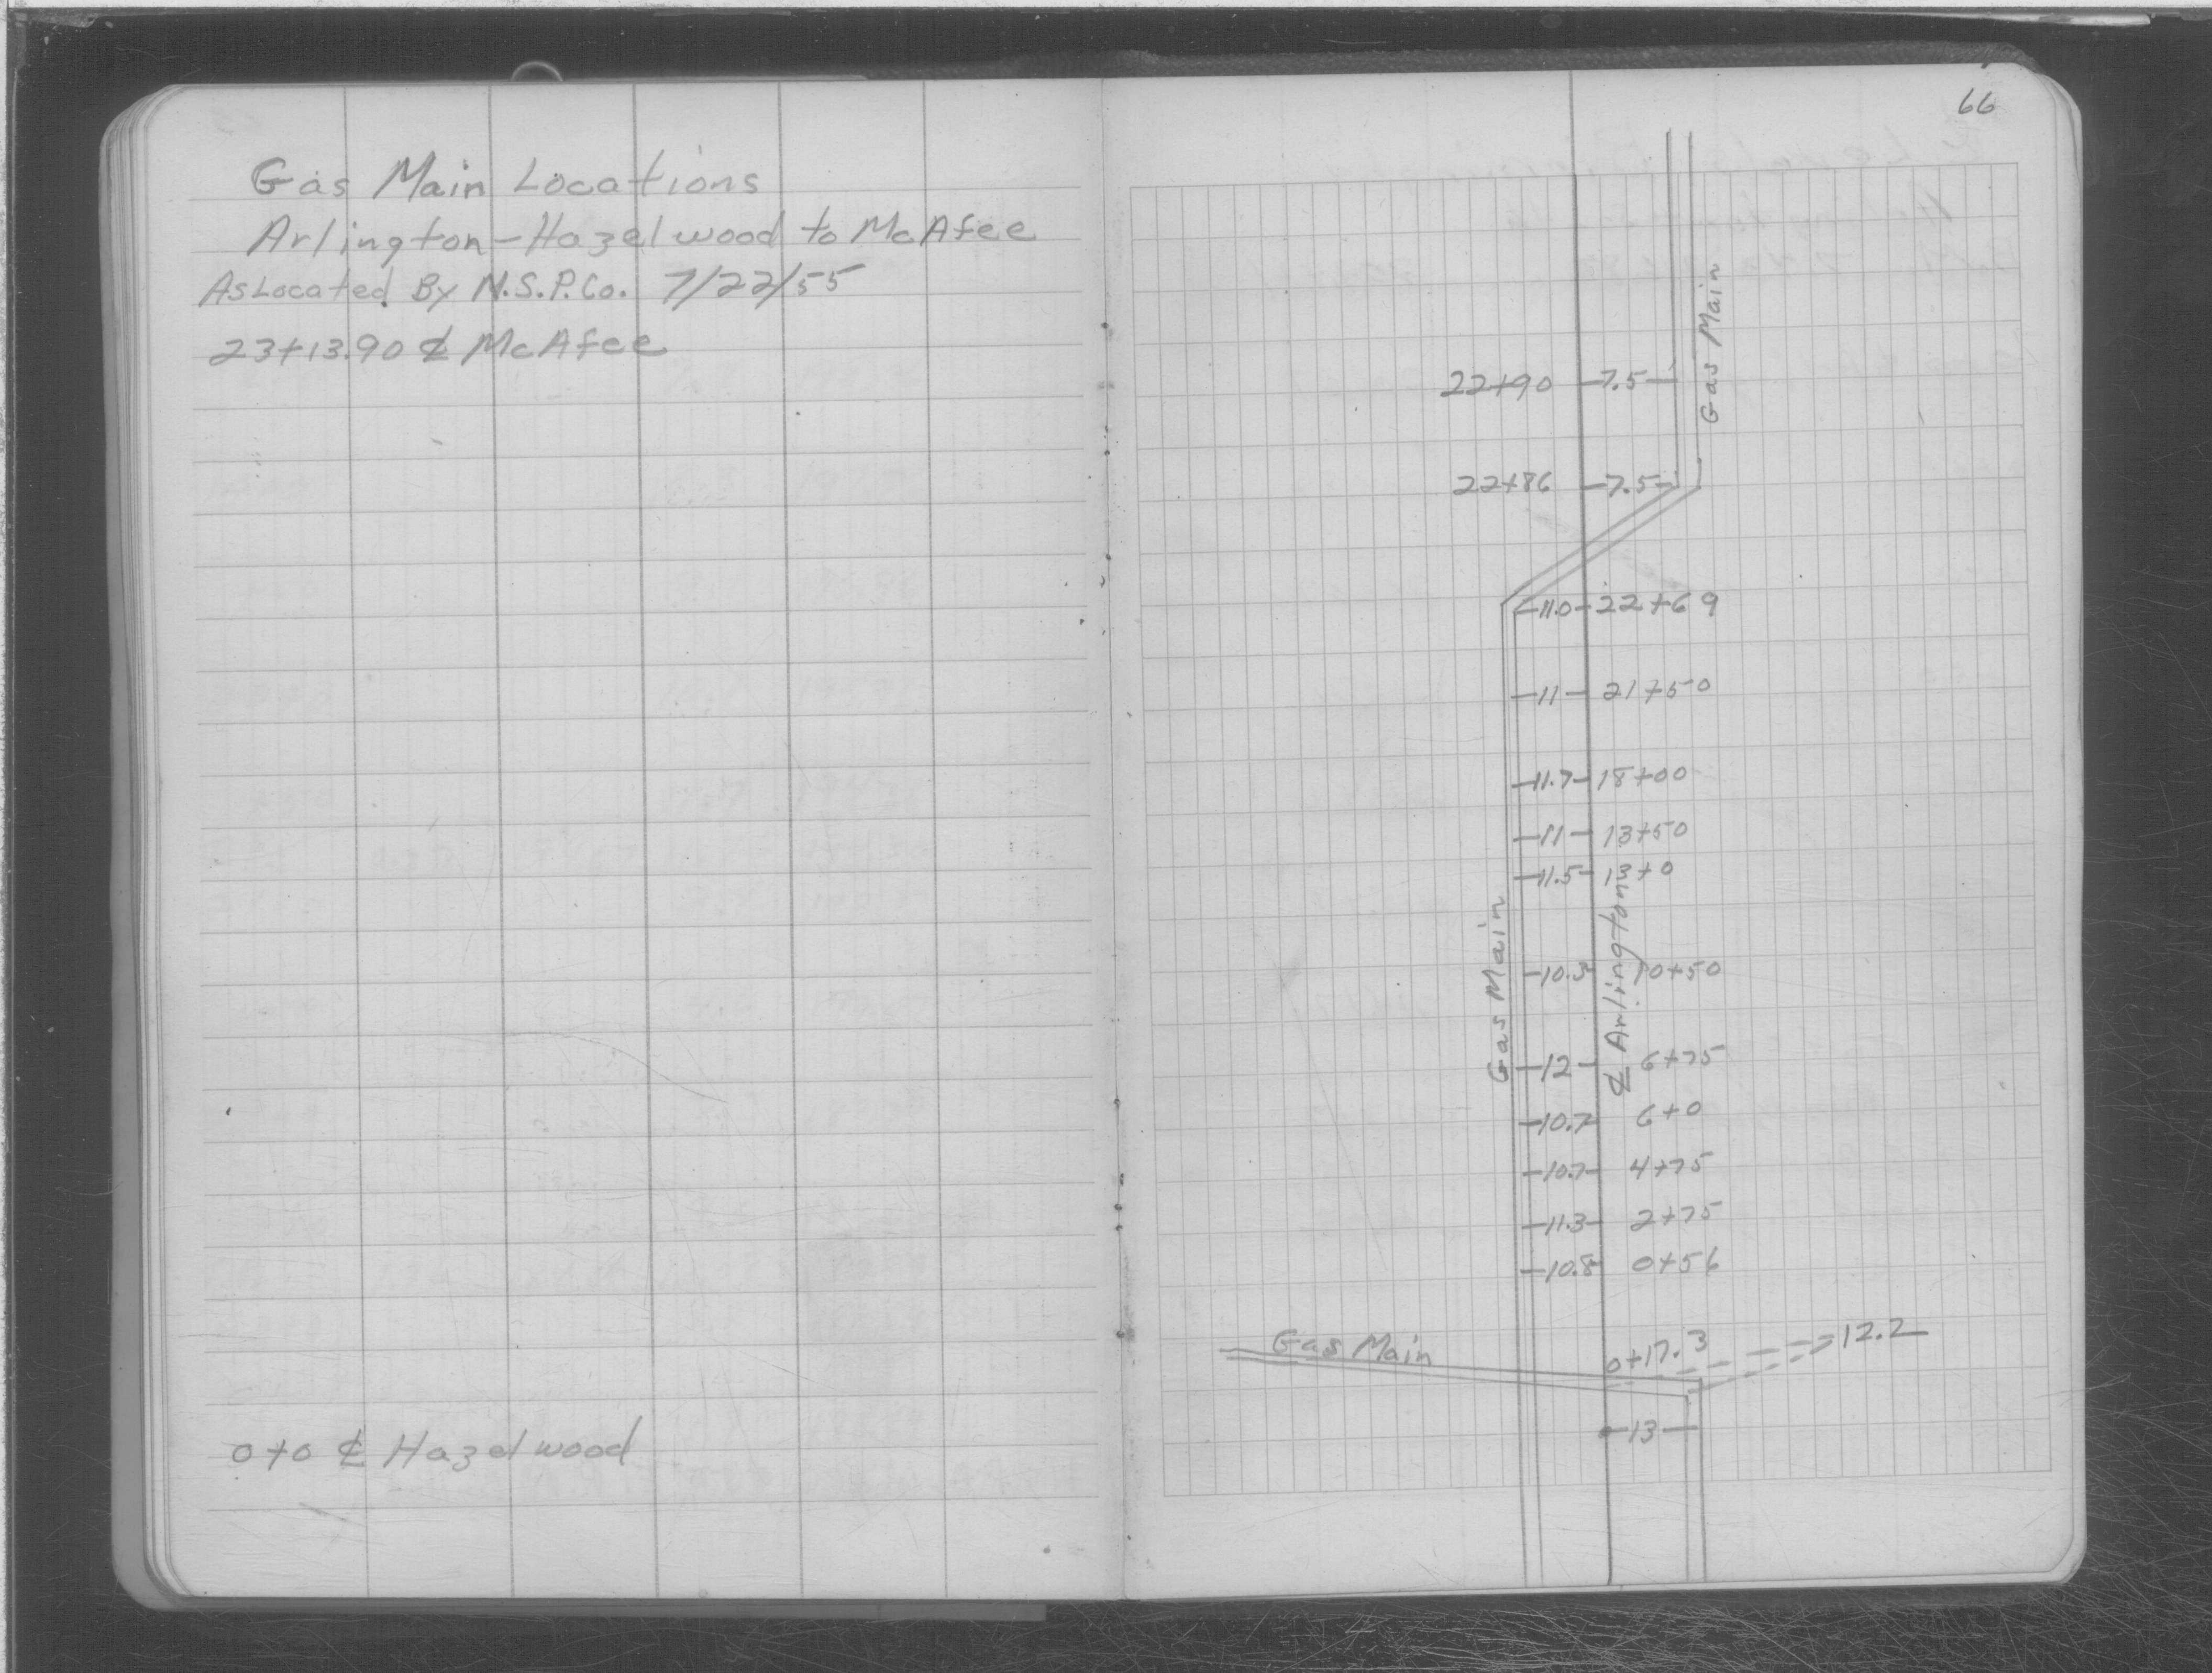 Gas Main Locations
Arlington-Hazelwood to McAfee
As Located By N.S.P.Co. 7/22/55
23+13.90 ℄ McAfee
0+0 ℄ Hazelwood
66
Gas Main
22+90 -7.5-
22+86 -7.5-
-11.0- 22+69
-11- 21+50
-11.7- 18+00
-11- 13+50
-11.5- 13+0
Gas Main
℄ Arlington
-10.3 10+50
-12- 6+75
-10.7 6+0
-10.7- 4+75
-11.3- 2+75
-10.8 0+56
Gas Main
0+17.3
12.2
-13-